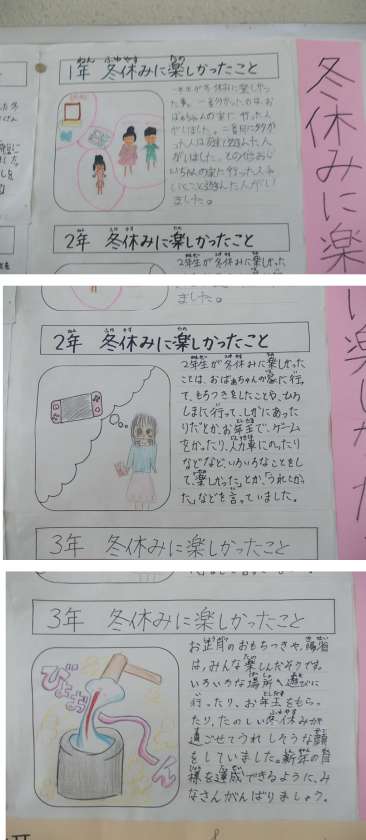 冬休みに楽
1年 冬休みに楽しかったこと
一年生が冬休みに楽しかっ
た事。一番多かったのは、お
ばあちゃんの家に行った人
がいました。二番目に多かっ
た人は友達と遊んだ人
がいました。その他おじ
いちゃんの家に行った人や
いとこと遊んだ人がい
ました。
2年 冬休みに楽しかったこと
2年生が冬休みに楽しかった
ことは、おばあちゃんの家に行っ
て、もちつきをしたことや、ひろ
しまに行って、しかにあった
りだとか、お年玉で、ゲーム
をかったり、人力車にのったり
などなど、いろいろなことをし
て、楽しかった。とか、「うれしかっ
た」などを言っていました。
3年 冬休みに楽しかったこと
お正月のおもちつきや
は、みんな楽しんだそうです。
いろいろな場所へ遊びに
行ったり、お年玉をもらっ
たり、たのしい冬休みが
過ごせてうれしそうな顔
をしていました。新年の目
標を達成できるように、み
なさんがんばりましょう。